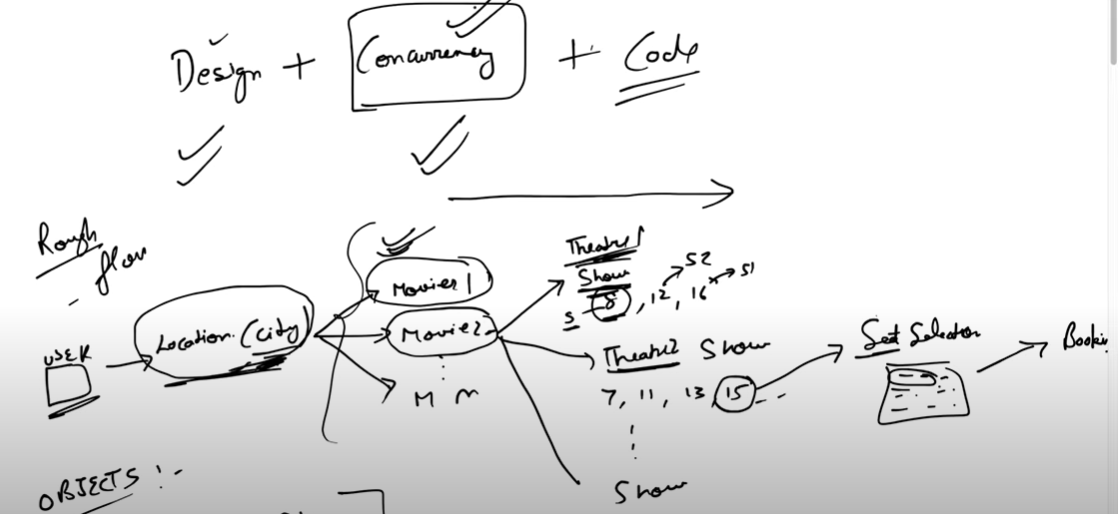 Design + Concurrency + Code
Rough
flow
USER
Location (City)
Movies 1
Movie 2
M n
Theatre 1
Show
8, 12, 16
S2
S1
Theatre 2 Show
7, 11, 13, 15
Show
Seat Selection
Bookin
OBJECTS :-